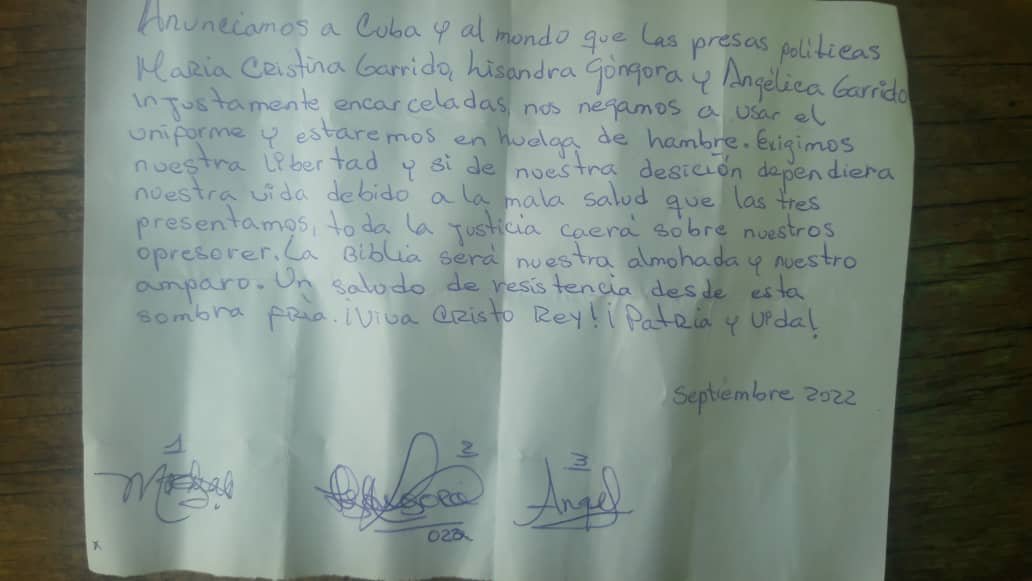 Anunciamos a Cuba y al mundo que las presas políticas
María Cristina Garrido, Lisandra Góngora y Angélica Garrido
injustamente encarceladas, nos negamos a usar el
uniforme y estaremos en huelga de hambre. Exigimos
nuestra libertad y si de nuestra desición dependiera
nuestra vida debido a la mala salud que las tres
presentamos, toda la justicia caerá sobre nuestros
opresorer. La Biblia será nuestra almohada y nuestro
amparo. Un saludo de resistencia desde esta
sombra fría. ¡Viva Cristo Rey! ¡Patria y Vida!
Septiembre 2022
1 2 3
Angel
x